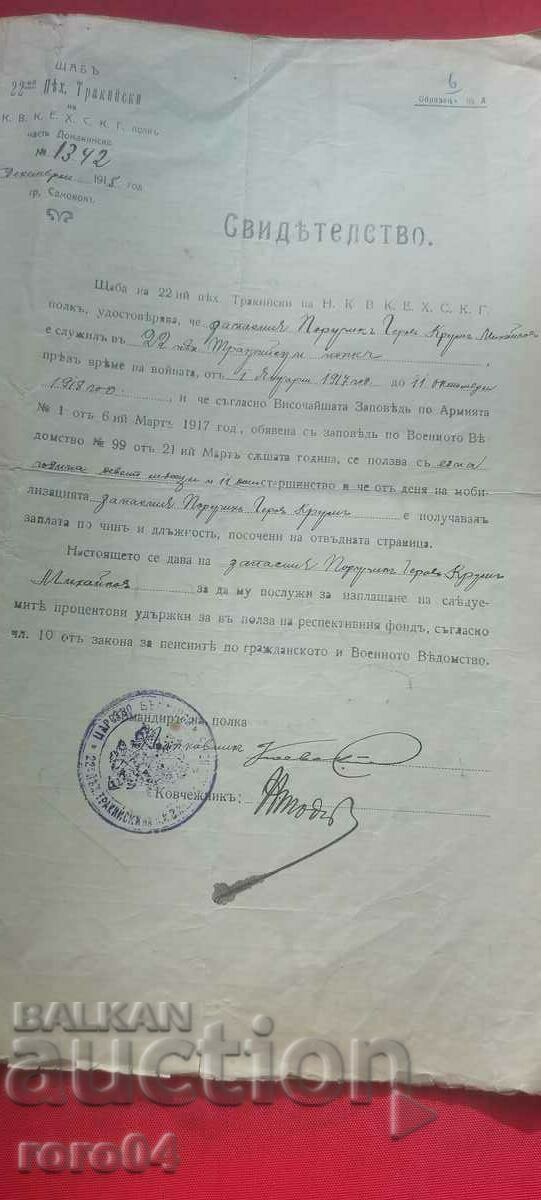 ЩАБЪ
22-ий Пѣх. Тракийски
на
К. В. К. Е. Х. С. К. Г. полкъ
часть Домакинска
№ 1342
Декемврий 1918 год.
гр. Самоковъ
6
Образецъ
Свидѣтелство.
Щаба на 22-ий пѣх. Тракийски на Н. К. В. К. Е. Х. С. К. Г.
полкъ, удостовѣрява, че запасния Поручикъ Геров Крумъ Михайловъ
е служилъ въ 22 пѣх. Тракийски полкъ
прѣзъ време на войната, отъ 1 Януари 1917 год до 11 октомври
1918 год, и че съгласно Височайшата Заповѣдь по Армията
№ 1 отъ 6-ий Мартъ 1917 год, обявена съ заповѣдь по Военното Вѣ-
домство № 99 отъ 21-ий Мартъ сѫщата година, се ползва съ една
година месеци и 11 старшинство и че отъ деня на моби-
лизацията запасния Поручикъ Геровъ Крумъ е получавалъ
заплата по чинъ и длъжность, посочени на отвъдната страница.
Настоящето се дава на запасния Поручикъ Геровъ Крумъ
Михайловъ за да му послужи за изплащане на слѣдуе-
митѣ процентови удържки за въ полза на респективния фондъ, съгласно
чл. 10 отъ закона за пенсиитѣ по гражданското и Военното Вѣдомство.
Командиръ на полка
Подполковникъ
Ковчежникъ:
ЦАРСТВО БЪЛГАРИЯ
22 ПѢХ. ТРАКИЙСКИ НА
BALKAN
auction
roro04